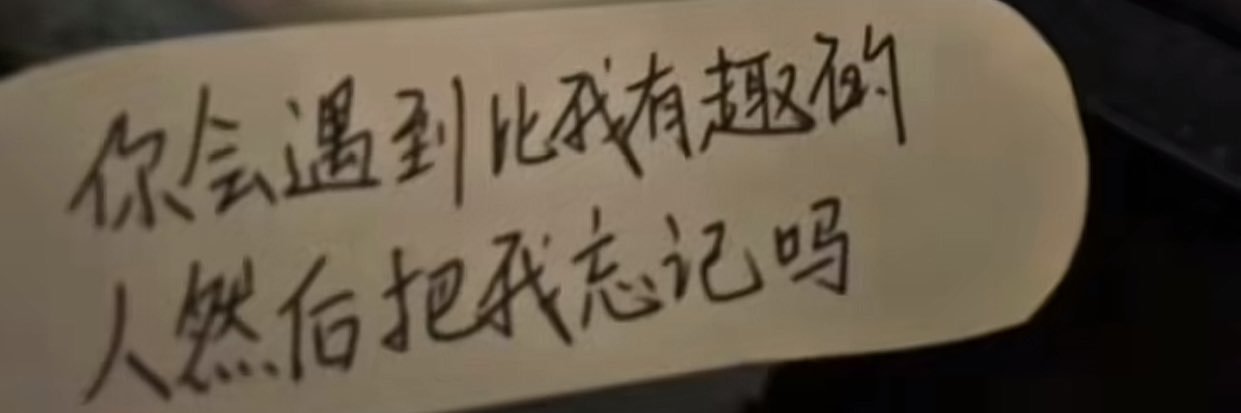 你会遇到比我有趣的
人然后把我忘记吗